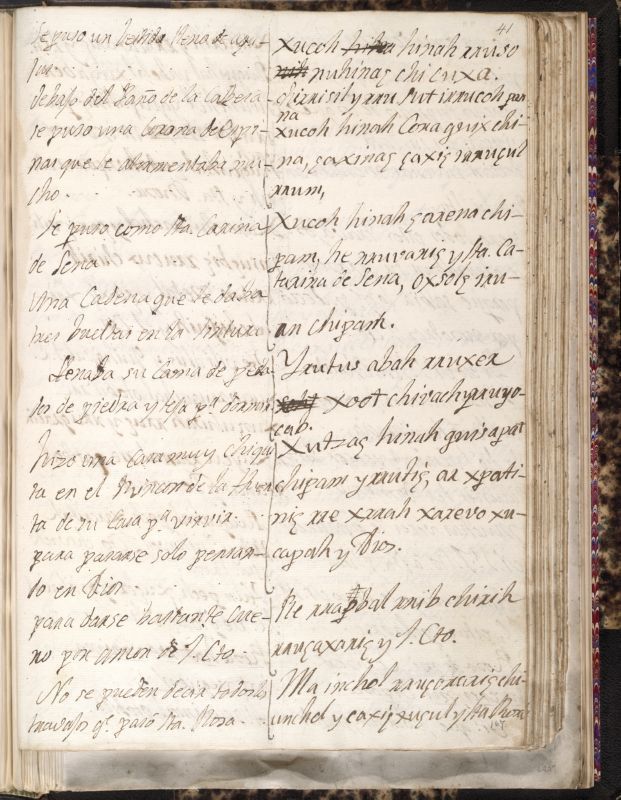 41
Se puso un vestido llena de agu-
jas
debajo del paño de la cabeza
se puso una corona de espi-
nas que le atormentaba mu-
cho.
Se puso como Sta. Catarina
de Sena
una Cadena que le daba
tres bueltas en la sintura
llenaba su cama de peda-
sos de piedra y teja pª dormir
hizo una casa muy chiqui-
ta en el Rincon de la huer
ta de su casa pª vivir
para pararse solo pensan-
do en Dios
para darse bastante cue-
ro por amor de J. Cto.
No se pueden decir todos los
travajos q. pasó Sta. Rosa.
Xucoh hinah rruso
nuhinaç chi cuxa.
chirrisil y rru sut irrucoh
na
xucoh hinah Coraguix chi-
na, çaxinaç çaxiç irruçul
rrum,
Xucoh hinah çarena chi-
pam, he rruvariç y Sta. Ca-
tarina de Sena, oxoleç iru-
an chipam.
Yrutus abah rruxer
xoot chirach rruyo-
cab.
Xutzaç hinah
chipam y rrutiç ar xpati-
niç rre xrrah xarevo xu-
capah y Dios.
Re rrapbal rrib chirih
rruçaxariç y J. Cto.
Ma inchel chi-
unchel y caxiç xuçul y Sta Rosa